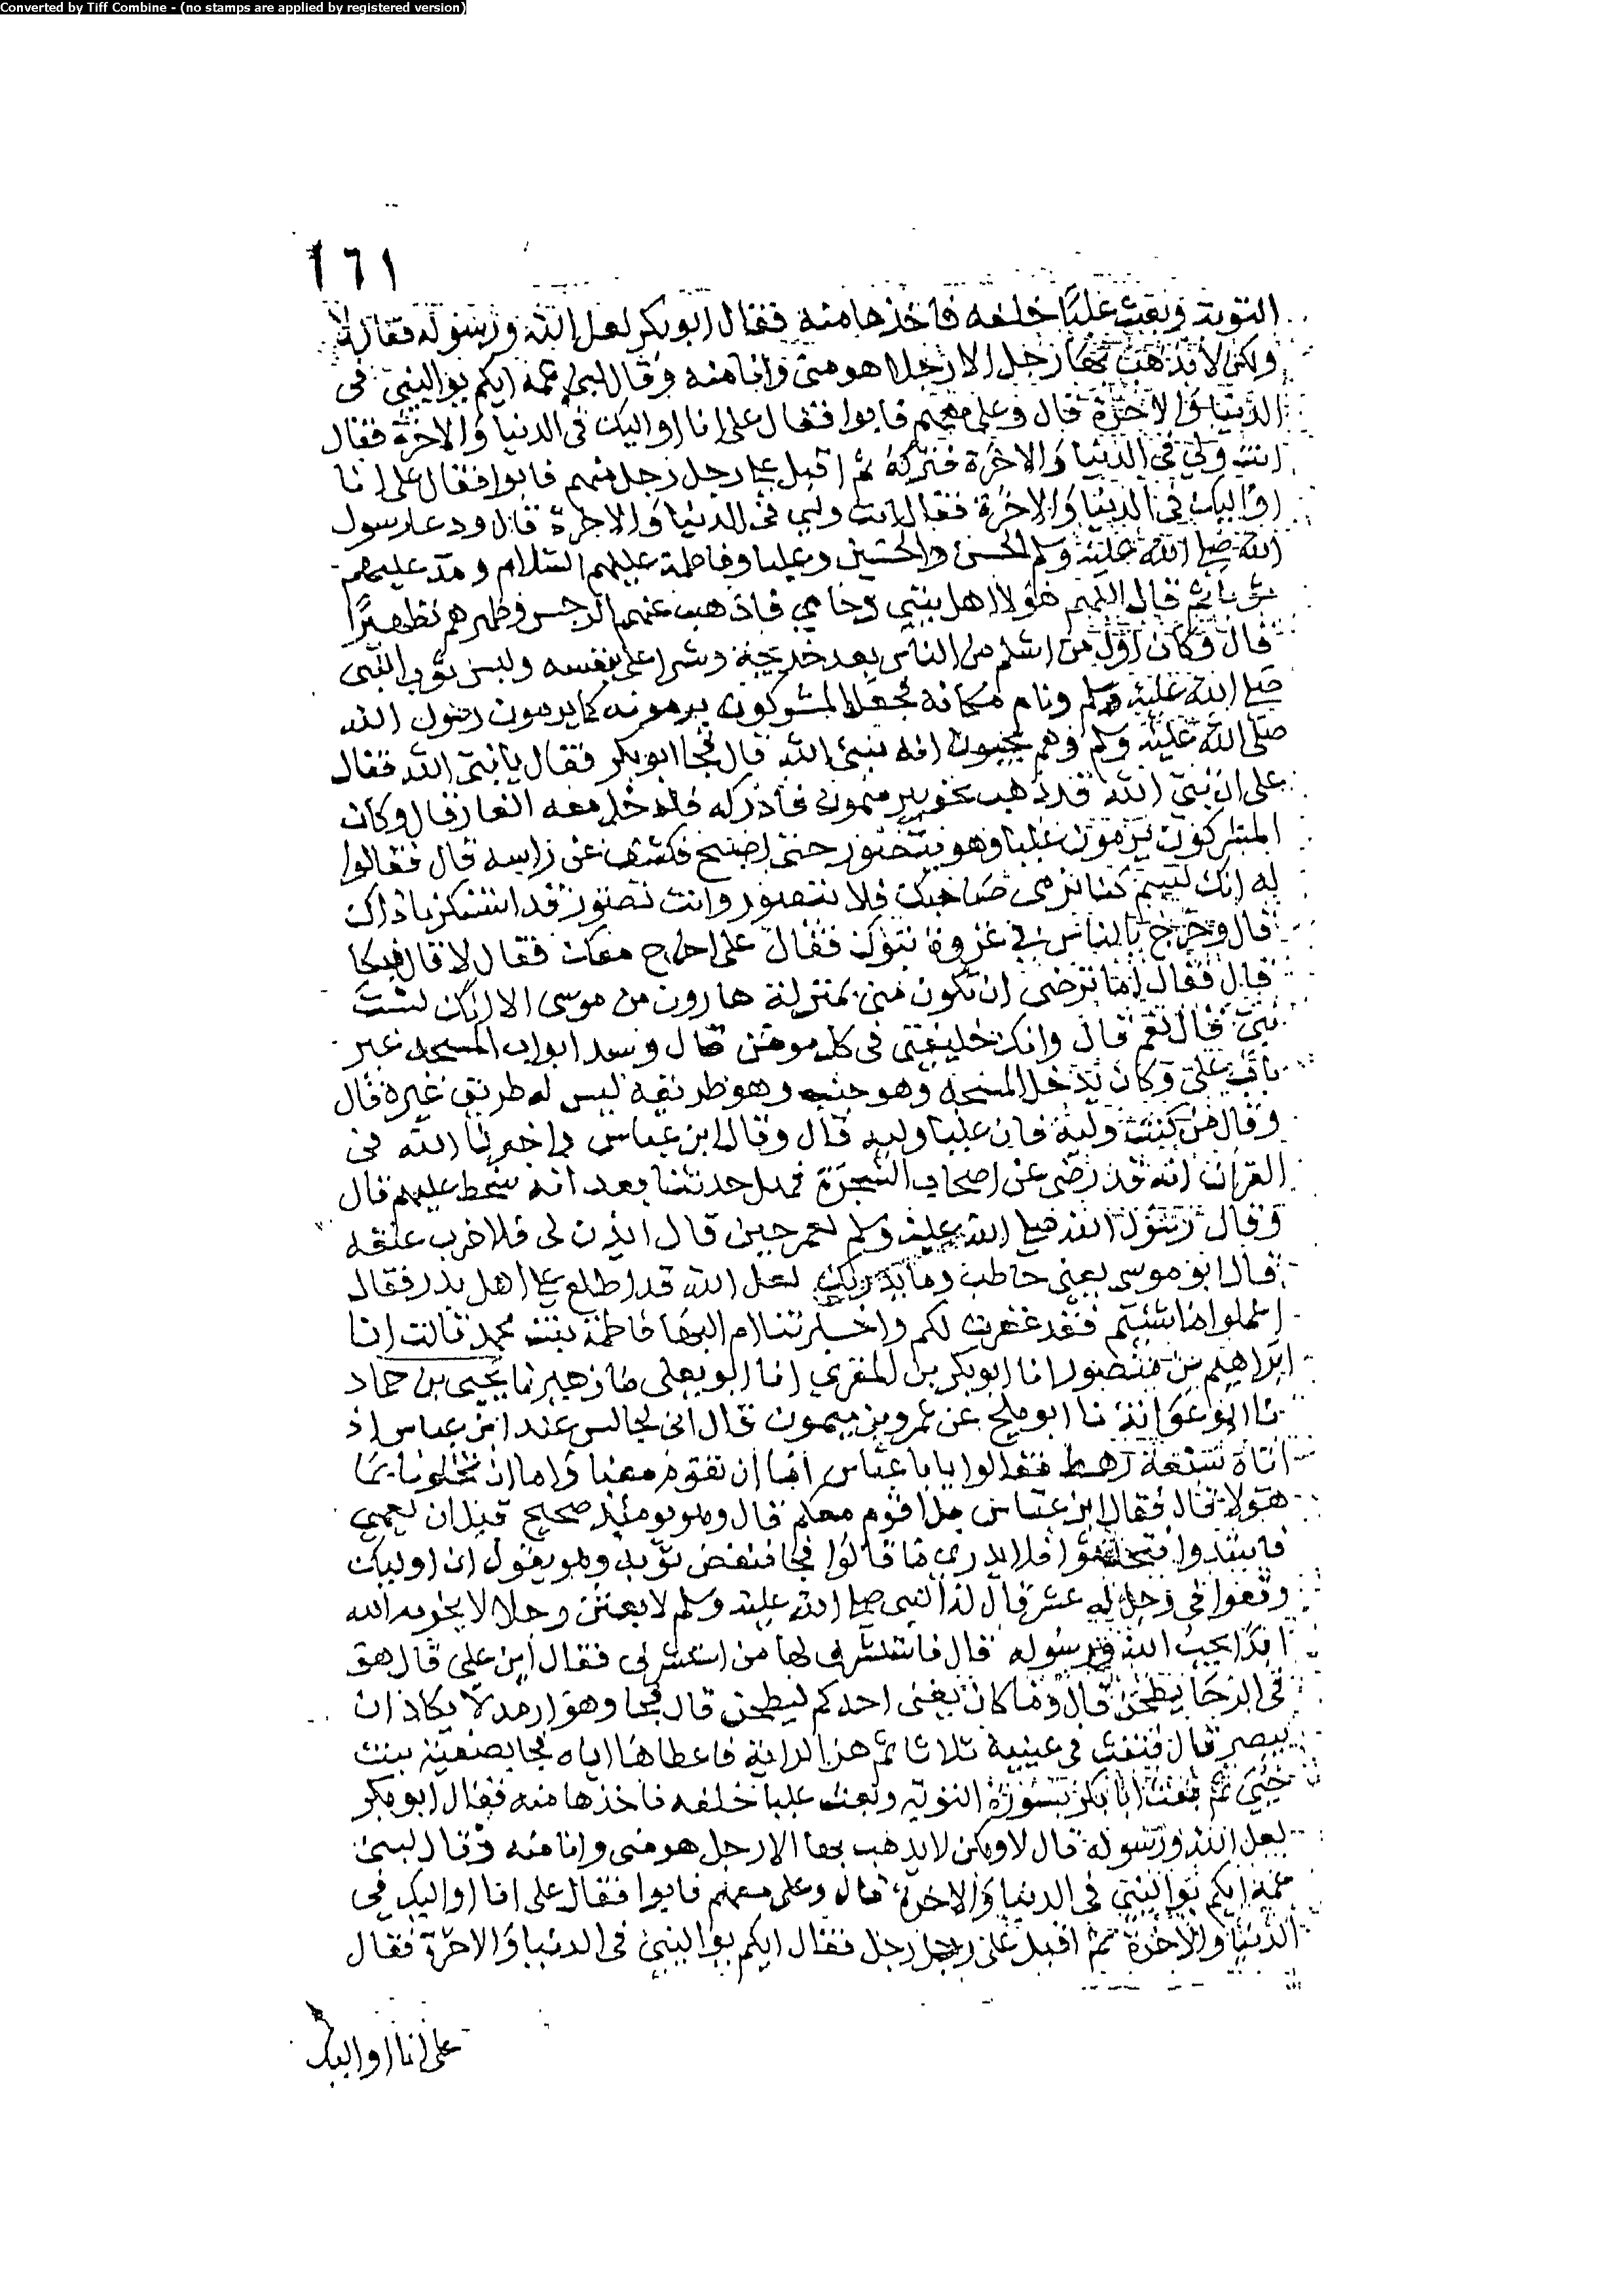 Converted by Tiff Combine - (no stamps are applied by registered version)
١٦١
التوبة وبعث عليا خلفه فاخذها منه فقال ابو بكر لعل الله ورسوله فقال لا
ولكن لا يذهب بها رجل الا رجلا هو مني وانا منه وقال لبني عمه ايكم يواليني في
الدنيا والاخرة قال وعلي معهم فابوا فقال علي انا اواليك في الدنيا والاخرة فقال
انت وليي في الدنيا والاخرة فتركه ثم اقبل على رجل رجل منهم فابوا فقال علي انا
اواليك في الدنيا والاخرة فقال انت وليي في الدنيا والاخرة قال ودعا رسول
الله صلى الله عليه وسلم الحسن والحسين وعليا وفاطمة عليهم السلام ومد عليهم
ثوبا ثم قال اللهم هولا اهل بيتي وحامي فاذهب عنهم الرجس وطهرهم تطهيرًا
قال وكان اول من اسلم من الناس بعد خديجة وشرا علي بنفسه ولبس ثوب النبي
صلى الله عليه وسلم ونام مكانه فجعل المشركون يرمونه كما يرمون رسول الله
صلى الله عليه وسلم وهم يحسبون انه نبي الله قال فجا ابو بكر فقال يا نبي الله فقال
علي ان نبي الله قد ذهب نحو بير ميمون فادركه فدخل معه الغار قال وكان
المشركون يرمون عليا وهو يتضور حتى اصبح فكشف عن راسه قال فقالوا
له انك لئيم كنا نرمي صاحبك فلا يتضور وانت تضور قد استنكرنا ذاك
قال وخرج بالناس في غزوة تبوك فقال علي اخرج معك فقال لا قال فبكا
قال فقال اما ترضى ان تكون مني بمنزلة هارون من موسى الا انك لست
نبي قال نعم قال وانك خليفتي في كل مومن قال وسد ابواب المسجد غير
باب علي وكان يدخل المسجد وهو جنب وهو طريقه ليس له طريق غيره قال
وقال من كنت وليه فان عليا وليه قال وقال ابن عباس اخبرنا الله في
القران انه قد رضي عن اصحاب الشجرة فهل حدثنا بعد انه سخط عليهم قال
وقال رسول الله صلى الله عليه وسلم لعمر حين قال ائذن لي فلاضرب عنقه
قال ابو موسى يعني حاطب وما يدريك لعل الله قد اطلع على اهل بدر فقال
اعملوا ما شئتم فقد غفرت لكم واخبرتنا ام البها فاطمة بنت محمد قالت انا
ابراهيم بن منصور انا ابو بكر بن المقري انا ابو يعلى نا زهير نا يحيى بن حماد
نا ابو عوانة نا ابو بلج عن عمرو بن ميمون قال اني لجالس عند ابن عباس اذ
اتاه تسعة رهط فقالوا يابا عباس اما ان تقوم معنا واما ان تخلونا يا
هولا قال فقال ابن عباس بل اقوم معكم قال وهو يومئذ صحيح قبل ان يعمي
فابتدوا فتحدثوا فلا يدري ما قالوا فجا ينفض ثوبه وهو يقول ان اوليك
وقعوا في رجل له عشر قال له النبي صلى الله عليه وسلم لابعثن رجلا لا يخزيه الله
ابدا يحب الله ورسوله قال فاستشرف لها من استشرف فقال اين علي قال هو
في الرحا يطحن قال وما كان يعني احدكم ليطحن قال فجا وهو ارمد لا يكاد ان
يبصر قال فنفث في عينيه ثلاثا ثم هز الراية فاعطاها اياه فجا بصفية بنت
حيي ثم بعث ابا بكر بسورة التوبة وبعث عليا خلفه فاخذها منه فقال ابو بكر
لعل الله ورسوله قال لا ولكن لا يذهب بها الا رجل هو مني وانا منه وقال لبني
عمه ايكم يواليني في الدنيا والاخرة قال وعلي معهم فابوا فقال علي انا اواليك في
الدنيا والاخرة ثم اقبل على رجل رجل فقال ايكم يواليني في الدنيا والاخرة فقال
علي انا اواليك